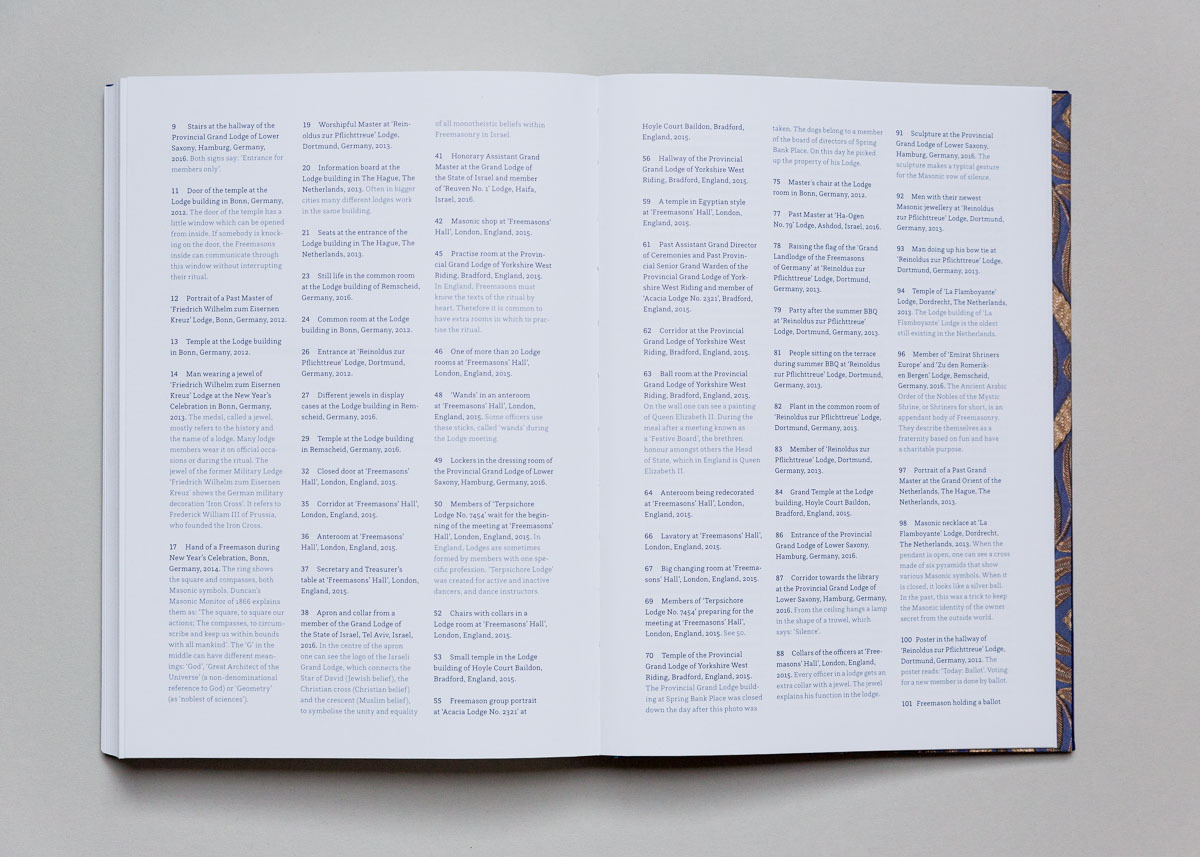 9 Stairs at the hallway of the
Provincial Grand Lodge of Lower
Saxony, Hamburg, Germany,
2016. Both signs say: 'Entrance for
members only'.
11 Door of the temple at the
Lodge building in Bonn, Germany,
2012. The door of the temple has a
little window which can be opened
from inside. If somebody is knock-
ing on the door, the Freemasons
inside can communicate through
this window without interrupting
their ritual.
12 Portrait of a Past Master of
'Friedrich Wilhelm zum Eisernen
Kreuz' Lodge, Bonn, Germany, 2012.
13 Temple at the Lodge building
in Bonn, Germany, 2012.
14 Man wearing a jewel of
'Friedrich Wilhelm zum Eisernen
Kreuz' Lodge at the New Year's
Celebration in Bonn, Germany,
2013. The medal, called a jewel,
mostly refers to the history and
the name of a lodge. Many lodge
members wear it on official occa-
sions or during the ritual. The
jewel of the former Military Lodge
'Friedrich Wilhelm zum Eisernen
Kreuz' shows the German military
decoration 'Iron Cross'. It refers to
Frederick William III of Prussia,
who founded the Iron Cross.
17 Hand of a Freemason during
New Year's Celebration, Bonn,
Germany, 2014. The ring shows
the square and compasses, both
Masonic symbols. Duncan's
Masonic Monitor of 1866 explains
them as: 'The square, to square our
actions; The compasses, to circum-
scribe and keep us within bounds
with all mankind'. The 'G' in the
middle can have different mean-
ings: 'God', 'Great Architect of the
Universe' (a non-denominational
reference to God) or 'Geometry'
(as 'noblest of sciences').
19 Worshipful Master at 'Rein-
oldus zur Pflichttreue' Lodge,
Dortmund, Germany, 2013.
20 Information board at the
Lodge building in The Hague, The
Netherlands, 2013. Often in bigger
cities many different lodges work
in the same building.
21 Seats at the entrance of the
Lodge building in The Hague, The
Netherlands, 2013.
23 Still life in the common room
at the Lodge building of Remscheid,
Germany, 2016.
24 Common room at the Lodge
building in Bonn, Germany, 2012.
26 Entrance at 'Reinoldus zur
Pflichttreue' Lodge, Dortmund,
Germany, 2012.
27 Different jewels in display
cases at the Lodge building in Rem-
scheid, Germany, 2016.
29 Temple at the Lodge building
in Remscheid, Germany, 2016.
32 Closed door at 'Freemasons'
Hall', London, England, 2015.
35 Corridor at 'Freemasons' Hall',
London, England, 2015.
36 Anteroom at 'Freemasons'
Hall', London, England, 2015.
37 Secretary and Treasurer's
table at 'Freemasons' Hall', London,
England, 2015.
38 Apron and collar from a
member of the Grand Lodge of
the State of Israel, Tel Aviv, Israel,
2016. In the centre of the apron
one can see the logo of the Israeli
Grand Lodge, which connects the
Star of David (Jewish belief), the
Christian cross (Christian belief)
and the crescent (Muslim belief),
to symbolise the unity and equality
of all monotheistic beliefs within
Freemasonry in Israel.
41 Honorary Assistant Grand
Master at the Grand Lodge of
the State of Israel and member
of 'Reuven No. 1' Lodge, Haifa,
Israel, 2016.
42 Masonic shop at 'Freemasons'
Hall', London, England, 2015.
45 Practise room at the Provin-
cial Grand Lodge of Yorkshire West
Riding, Bradford, England, 2015.
In England, Freemasons must
know the texts of the ritual by
heart. Therefore it is common to
have extra rooms in which to prac-
tise the ritual.
46 One of more than 20 Lodge
rooms at 'Freemasons' Hall',
London, England, 2015.
48 'Wands' in an anteroom
at 'Freemasons' Hall', London,
England, 2015. Some officers use
these sticks, called 'wands' during
the Lodge meeting.
49 Lockers in the dressing room of
the Provincial Grand Lodge of Lower
Saxony, Hamburg, Germany, 2016.
50 Members of 'Terpsichore
Lodge No. 7454' wait for the begin-
ning of the meeting at 'Freemasons'
Hall', London, England, 2015. In
England, Lodges are sometimes
formed by members with one spe-
cific profession. 'Terpsichore Lodge'
was created for active and inactive
dancers, and dance instructors.
52 Chairs with collars in a
Lodge room at 'Freemasons' Hall',
London, England, 2015.
53 Small temple in the Lodge
building of Hoyle Court Baildon,
Bradford, England, 2015.
55 Freemason group portrait
at 'Acacia Lodge No. 2321' at
Hoyle Court Baildon, Bradford,
England, 2015.
56 Hallway of the Provincial
Grand Lodge of Yorkshire West
Riding, Bradford, England, 2015.
59 A temple in Egyptian style
at 'Freemasons' Hall', London,
England, 2015.
61 Past Assistant Grand Director
of Ceremonies and Past Provin-
cial Senior Grand Warden of the
Provincial Grand Lodge of York-
shire West Riding and member of
'Acacia Lodge No. 2321', Bradford,
England, 2015.
62 Corridor at the Provincial
Grand Lodge of Yorkshire West
Riding, Bradford, England, 2015.
63 Ball room at the Provincial
Grand Lodge of Yorkshire West
Riding, Bradford, England, 2015.
On the wall one can see a painting
of Queen Elizabeth II. During the
meal after a meeting known as
a 'Festive Board', the brethren
honour amongst others the Head
of State, which in England is Queen
Elizabeth II.
64 Anteroom being redecorated
at 'Freemasons' Hall', London,
England, 2015.
66 Lavatory at 'Freemasons' Hall',
London, England, 2015.
67 Big changing room at 'Freema-
sons' Hall', London, England, 2015.
69 Members of 'Terpsichore
Lodge No. 7454' preparing for the
meeting at 'Freemasons' Hall',
London, England, 2015. See 50.
70 Temple of the Provincial
Grand Lodge of Yorkshire West
Riding, Bradford, England, 2015.
The Provincial Grand Lodge build-
ing at Spring Bank Place was closed
down the day after this photo was
taken. The dogs belong to a member
of the board of directors of Spring
Bank Place. On this day he picked
up the property of his Lodge.
75 Master's chair at the Lodge
room in Bonn, Germany, 2012.
77 Past Master at 'Ha-Ogen
No. 79' Lodge, Ashdod, Israel, 2016.
78 Raising the flag of the 'Grand
Landlodge of the Freemasons
of Germany' at 'Reinoldus zur
Pflichttreue' Lodge, Dortmund,
Germany, 2013.
79 Party after the summer BBQ
at 'Reinoldus zur Pflichttreue'
Lodge, Dortmund, Germany, 2013.
81 People sitting on the terrace
during summer BBQ at 'Reinoldus
zur Pflichttreue' Lodge, Dortmund,
Germany, 2013.
82 Plant in the common room of
'Reinoldus zur Pflichttreue' Lodge,
Dortmund, Germany, 2013.
83 Member of 'Reinoldus zur
Pflichttreue' Lodge, Dortmund,
Germany, 2013.
84 Grand Temple at the Lodge
building, Hoyle Court Baildon,
Bradford, England, 2015.
86 Entrance of the Provincial
Grand Lodge of Lower Saxony,
Hamburg, Germany, 2016.
87 Corridor towards the library
at the Provincial Grand Lodge of
Lower Saxony, Hamburg, Germany,
2016. From the ceiling hangs a lamp
in the shape of a trowel, which
says: 'Silence'.
88 Collars of the officers at 'Free-
masons' Hall', London, England,
2015. Every officer in a lodge gets an
extra collar with a jewel. The jewel
explains his function in the lodge.
91 Sculpture at the Provincial
Grand Lodge of Lower Saxony,
Hamburg, Germany, 2016. The
sculpture makes a typical gesture
for the Masonic vow of silence.
92 Men with their newest
Masonic jewellery at 'Reinoldus
zur Pflichttreue' Lodge, Dortmund,
Germany, 2013.
93 Man doing up his bow tie at
'Reinoldus zur Pflichttreue' Lodge,
Dortmund, Germany, 2013.
94 Temple of 'La Flamboyante'
Lodge, Dordrecht, The Netherlands,
2013. The Lodge building of 'La
Flamboyante' Lodge is the oldest
still existing in the Netherlands.
96 Member of 'Emirat Shriners
Europe' and 'Zu den Romerik-
en Bergen' Lodge, Remscheid,
Germany, 2016. The Ancient Arabic
Order of the Nobles of the Mystic
Shrine, or Shriners for short, is an
appendant body of Freemasonry.
They describe themselves as a
fraternity based on fun and have
a charitable purpose.
97 Portrait of a Past Grand
Master at the Grand Orient of the
Netherlands, The Hague, The
Netherlands, 2013.
98 Masonic necklace at 'La
Flamboyante' Lodge, Dordrecht,
The Netherlands, 2013. When the
pendant is open, one can see a cross
made of six pyramids that show
various Masonic symbols. When it
is closed, it looks like a silver ball.
In the past, this was a trick to keep
the Masonic identity of the owner
secret from the outside world.
100 Poster in the hallway of
'Reinoldus zur Pflichttreue' Lodge,
Dortmund, Germany, 2012. The
poster reads: 'Today: Ballot'. Voting
for a new member is done by ballot.
101 Freemason holding a ballot